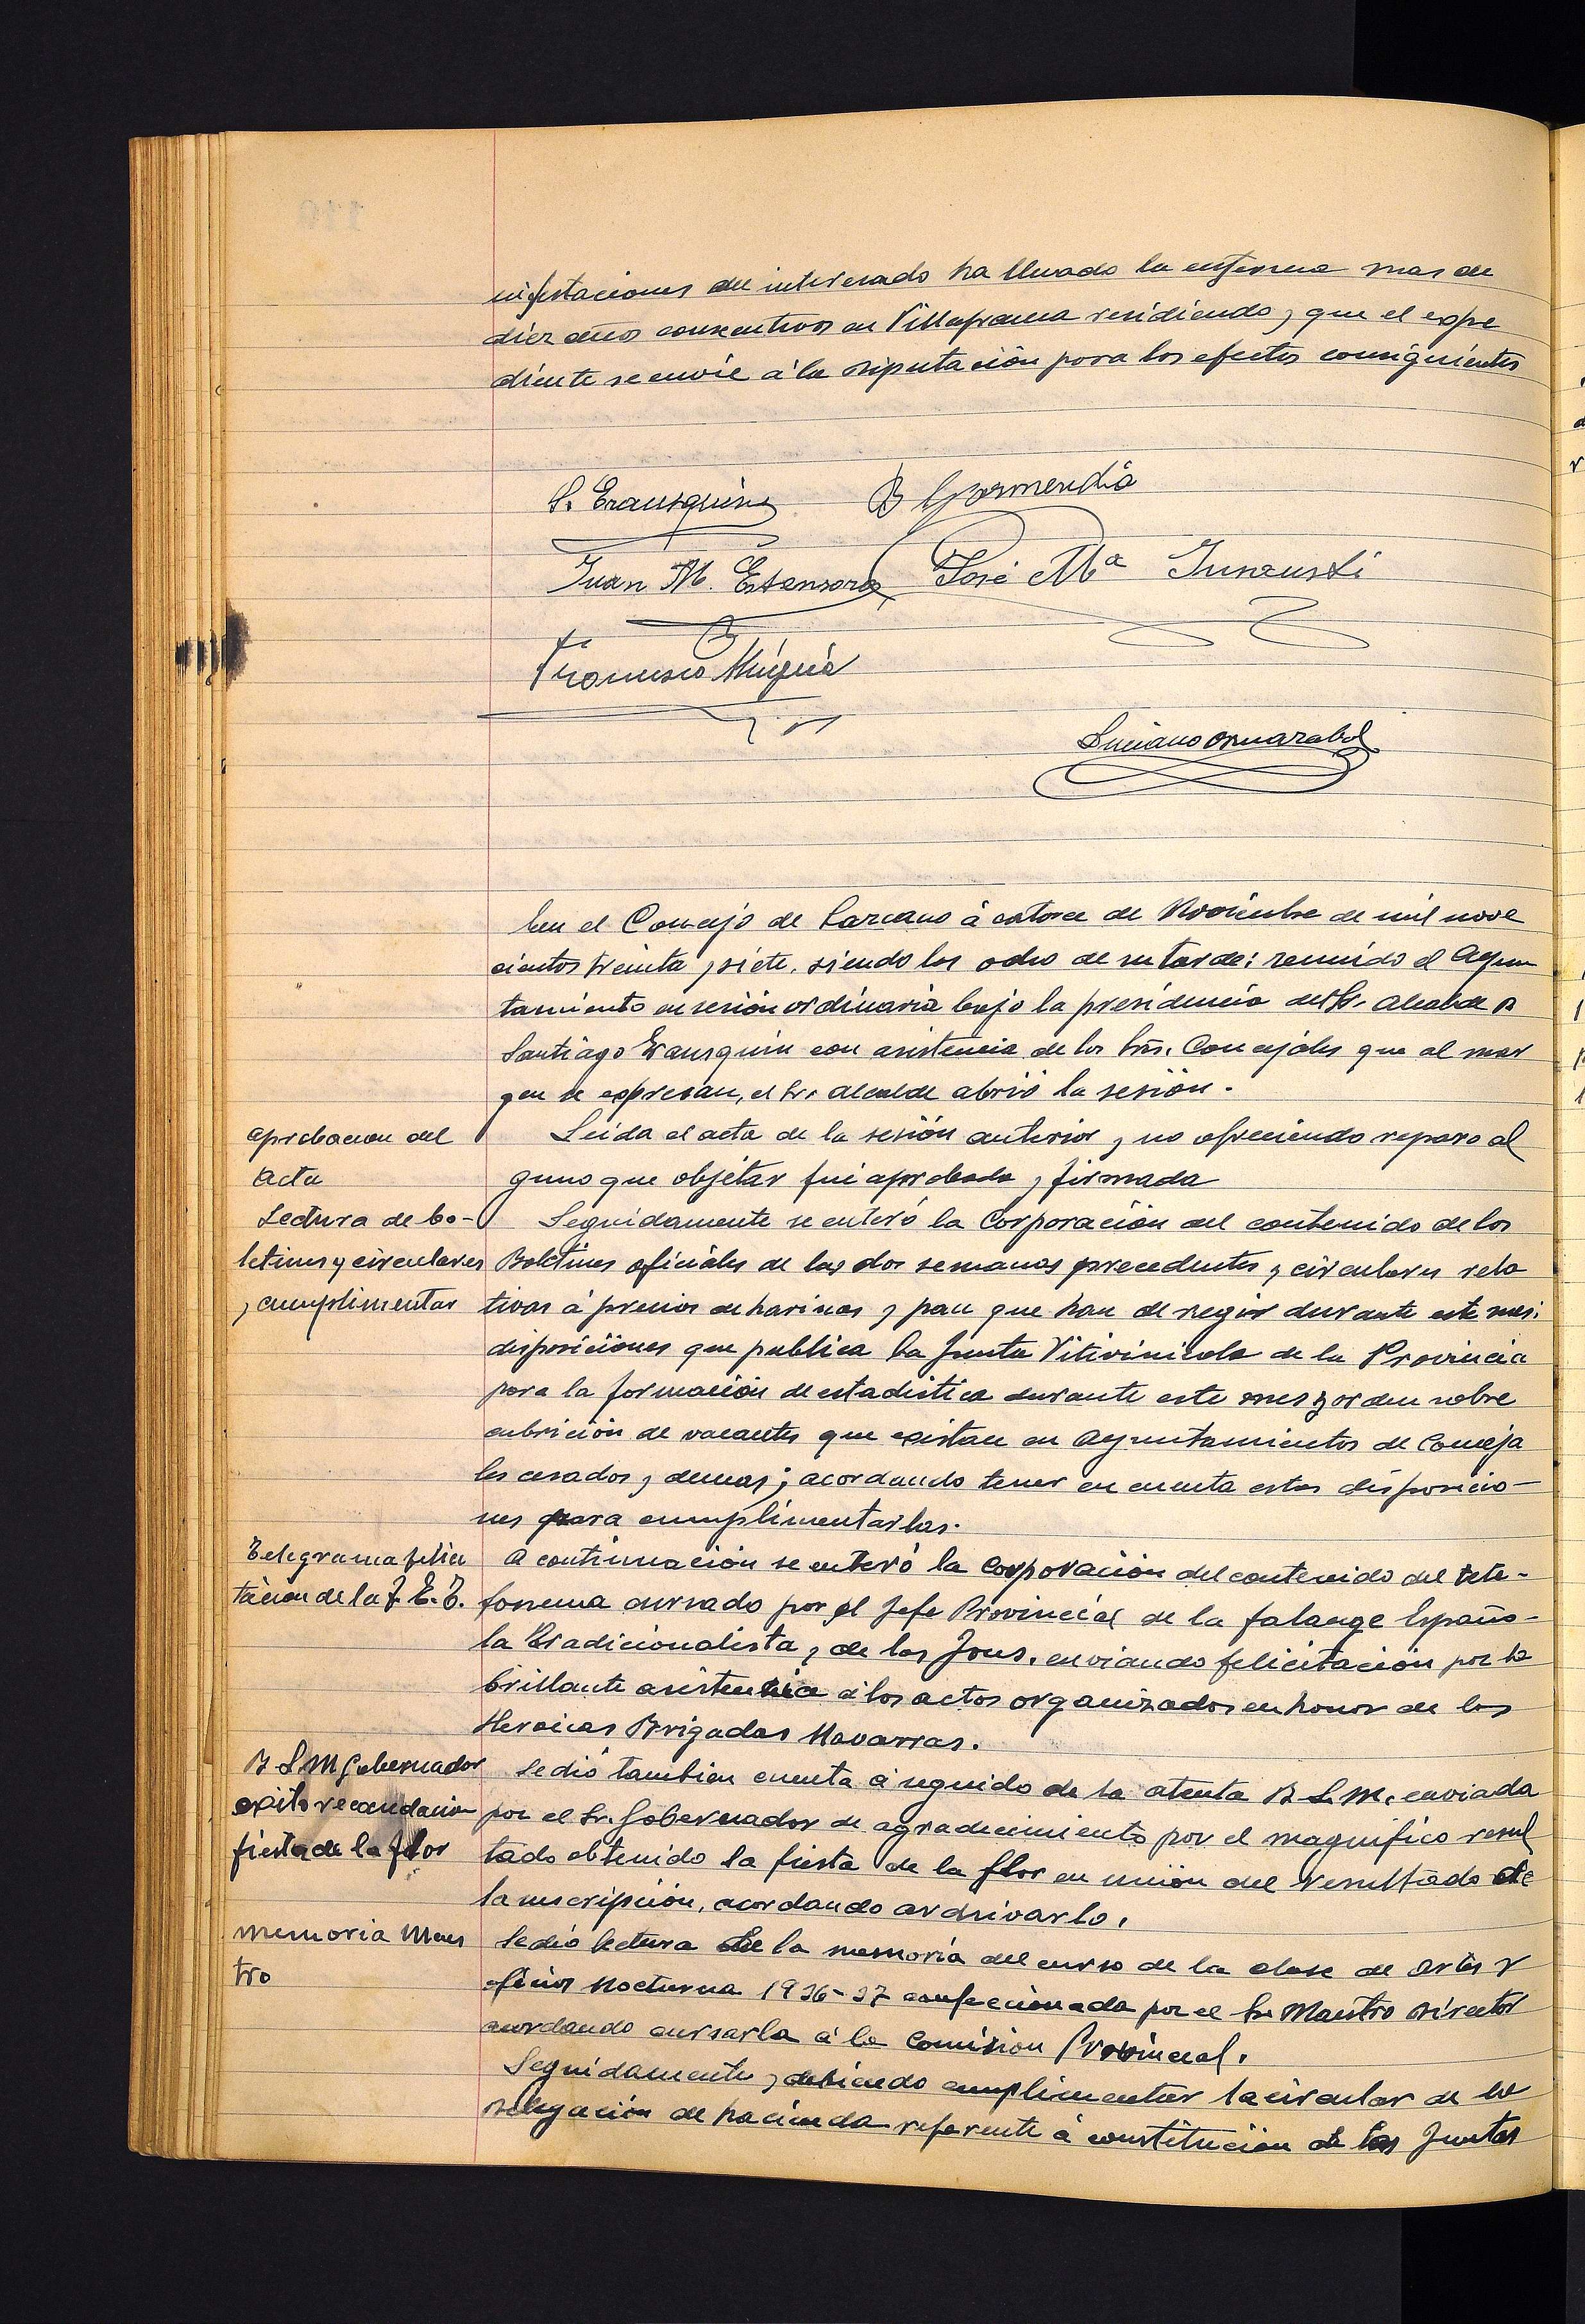 nifestaciones del interesado ha llevado la enferma mas de
diez años consecutivos en Villafranca residiendo y que el expe
diente se envie á la Diputación para los efectos consiguientes
S. Erausquin B Garmendia
Juan M. Estensoro José Mª Insausti
Francisco Múgica
Luciano Ormazabal
En el Concejo de Lazcano á catorce de Noviembre de mil nove
cientos treinta y siete, siendo las ocho de su tarde: reunido el Ayun
tamiento en sesión ordinaria bajo la presidencia del Sr. Alcalde D
Santiago Erausquin con asistencia de los Srs. Concejales que al mar
gen se expresan, el Sr. Alcalde abrió la sesión.
Aprobacion del
Acta
Leida el acta de la sesión anterior y no ofreciendo reparo al
guno que objetar fué aprobada y firmada
Lectura de bo-
letines y circulares
y cumplimentar
Seguidamente se enteró la Corporación del contenido de los
Boletines oficiales de las dos semanas precedentes y circulares rela
tivas á precios de harinas y pan que han de regir durante este mes:
disposiciones que publica la Junta Vitivinicola de la Provincia
para la formación de estadistica durante este mes y orden sobre
cubrición de vacantes que existan en Ayuntamientos de Conceja
les cesados y demas; acordando tener en cuenta estas disposicio-
nes para cumplimentarlas.
Telegrama felici
tacion de la F. E. T.
A continuación se enteró la Corporación del contenido del tele-
fonema cursado por el Jefe Provincial de la falange Españo-
la Tradicionalista y de las Jons. enviando felicitación por la
brillante asistencia á los actos organizados en honor de las
Heroicas Brigadas Navarras.
B L M Gobernador
exito recaudacion
fiesta de la flor
Se dió tambien cuenta á seguido de la atenta B. L. M. enviada
por el Sr. Gobernador de agradecimiento por el magnifico resul
tado obtenido la fiesta de la flor en unión del resultado de
la suscripción, acordando archivarlo.
Memoria Maes
tro
Se dió lectura de la memoria del curso de la clase de Artes y
oficios Nocturna 1936-37 confeccionada por el Sr Maestro Director
acordando cursarla á la Comisión Provincial.
Seguidamente y debiendo cumplimentar la circular de la
Delegación de hacienda referente á constitución de las Juntas